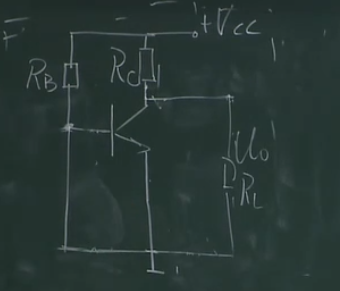 +Vcc
RB RC
Uo
RL